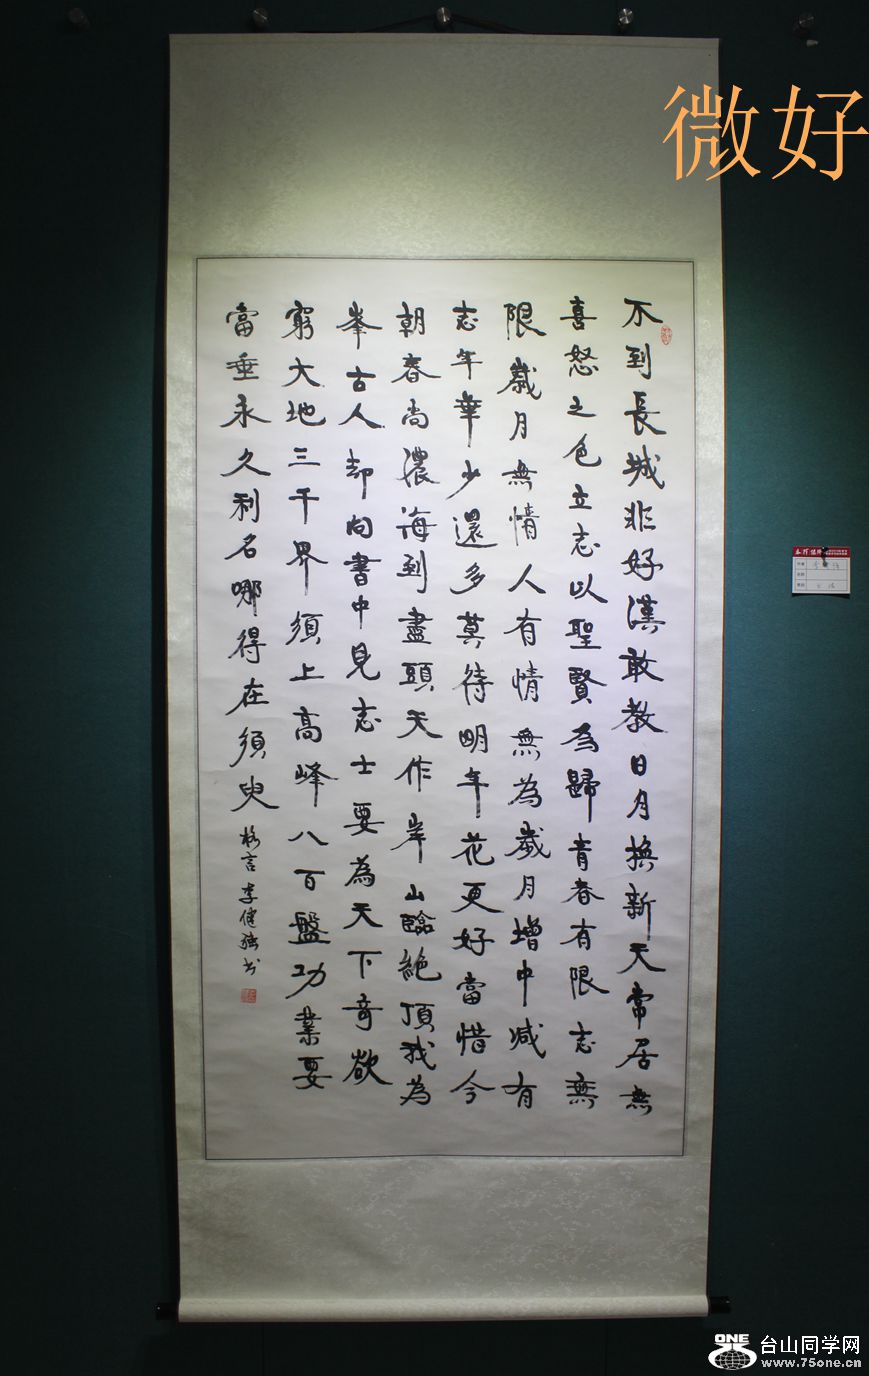 微好
不到長城非好漢敢教日月換新天常居無
喜怒之色立志以聖賢為歸青春有限志無
限歲月無情人有情無為歲月增中減有
志年華少還多莫待明年花更好當惜今
朝春尚濃海到盡頭天作岸山臨絕頂我為
峯古人却向書中見志士要為天下奇欲
窮大地三千界須上高峰八百盤功業要
當垂永久利名哪得在須臾
格言李健強书
ONE
台山同学网
www.75one.cn